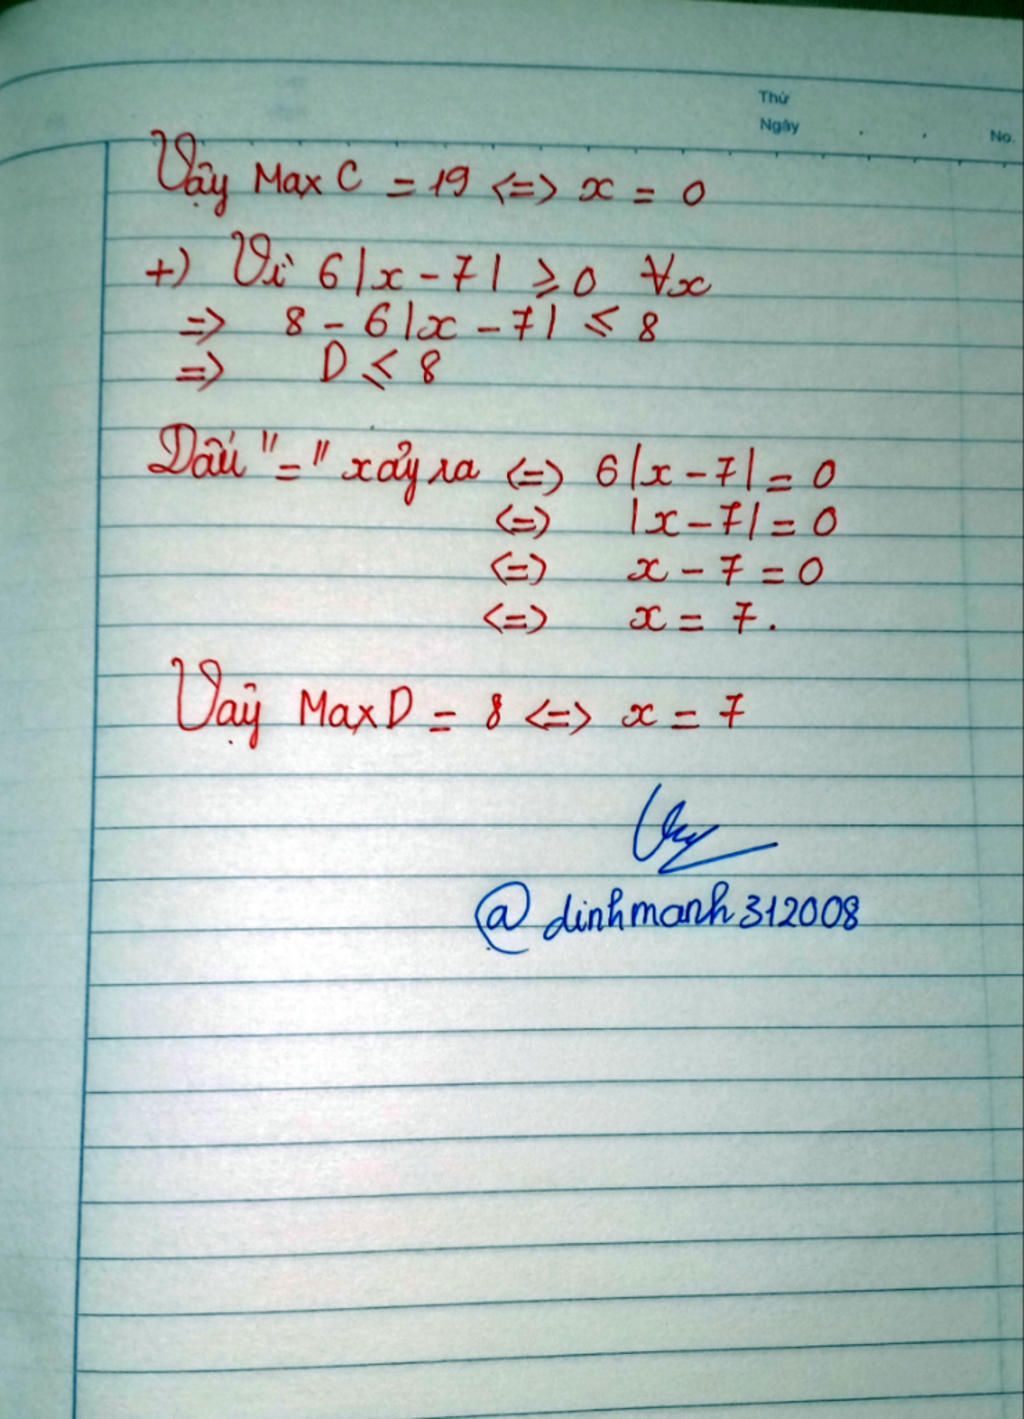 Thứ
Ngày . . No.
Vậy Max C = 19 <=> x = 0
+) Vì 6|x - 7| ⩾ 0 ∀x
=> 8 - 6|x - 7| ⩽ 8
=> D ⩽ 8
Dấu "=" xảy ra <=> 6|x - 7| = 0
<=> |x - 7| = 0
<=> x - 7 = 0
<=> x = 7.
Vậy Max D = 8 <=> x = 7
@dinhmanh312008